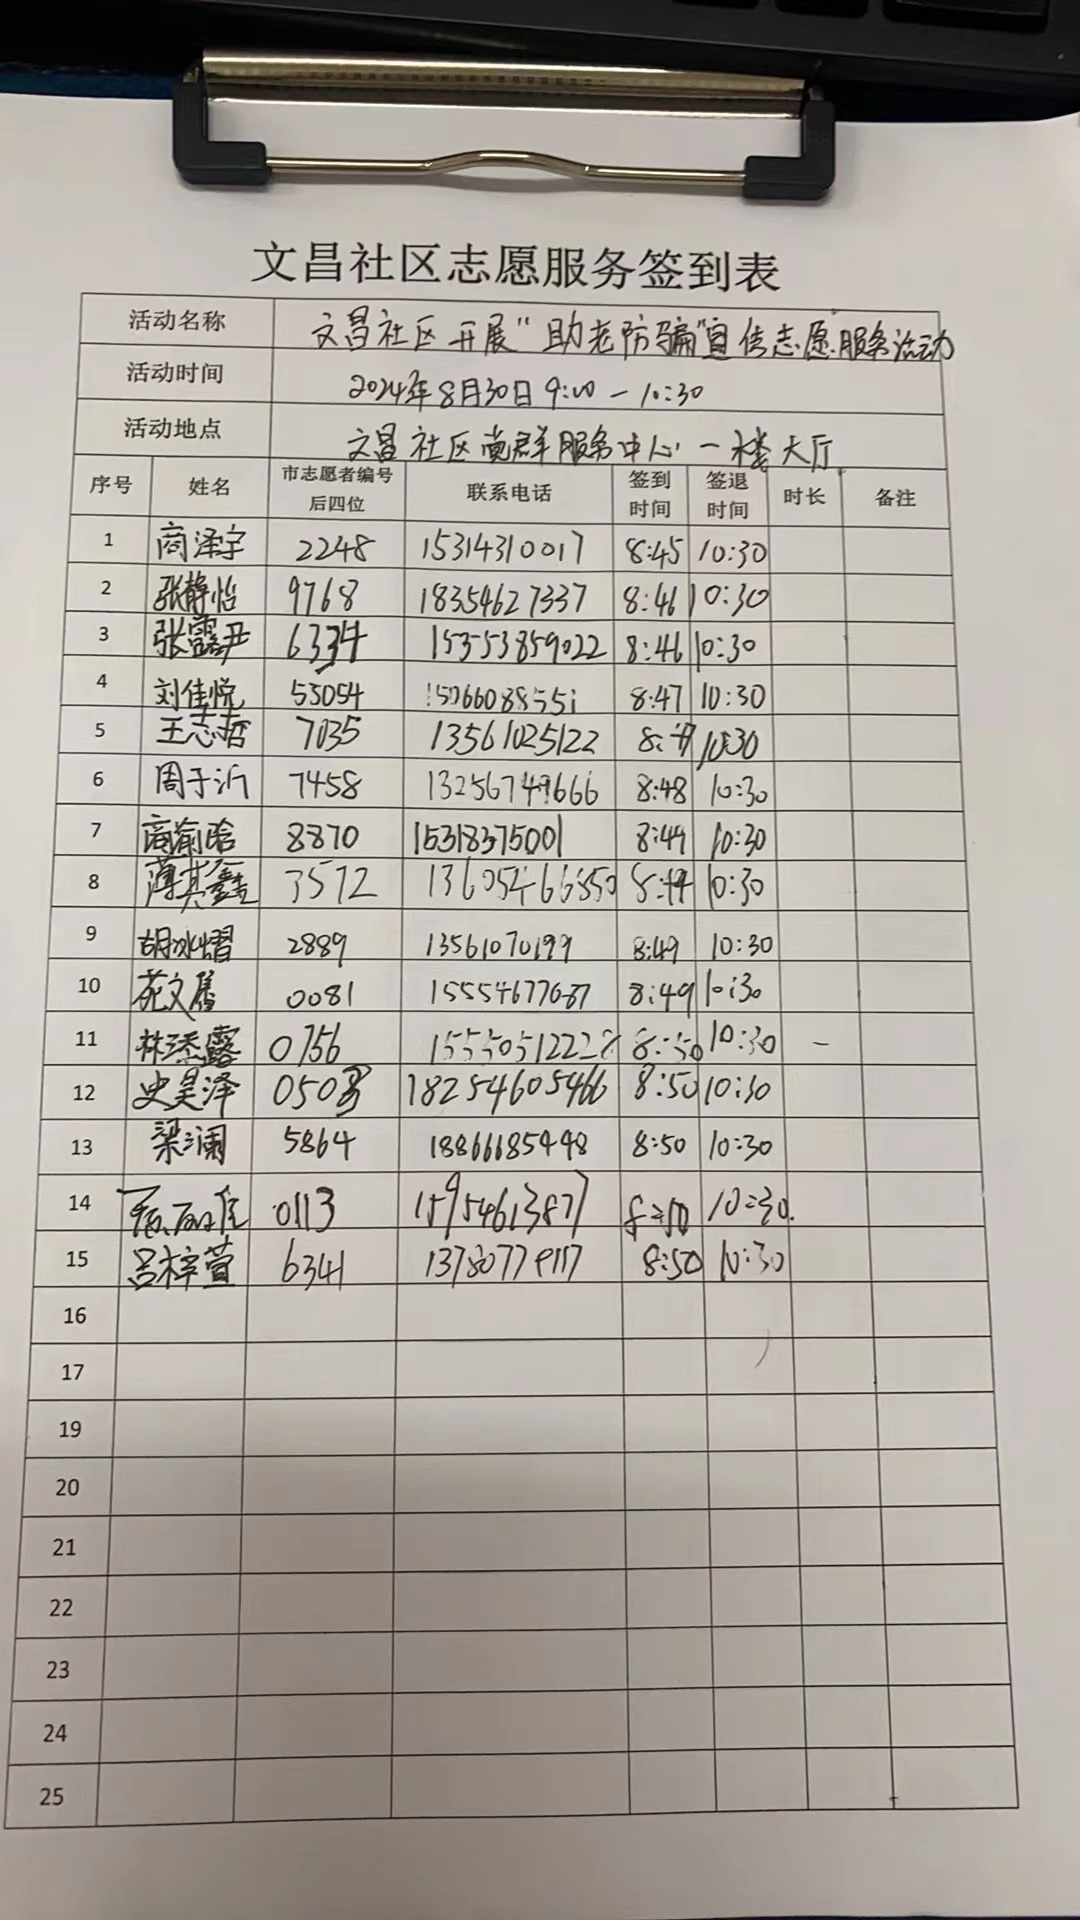 文昌社区志愿服务签到表
活动名称 文昌社区开展"助老防骗"宣传志愿服务活动
活动时间 2024年8月30日9:00—10:30
活动地点 文昌社区党群服务中心一楼大厅
序号 姓名 市志愿者编号后四位 联系电话 签到时间 签退时间 时长 备注
1 商泽宇 2248 15314310017 8:45 10:30
2 张静怡 9768 18354627337 8:46 10:30
3 张露尹 6334 15353859022 8:46 10:30
4 刘佳悦 55054 15066088551 8:47 10:30
5 王志哲 7035 13561025122 10:30
6 周于沂 7458 13256749666 8:48 10:30
7 商渝晗 8870 15318375001 8:49 10:30
8 薄其鑫 3572 13605466550 8:49 10:30
9 胡冰熠 2889 13561070199 8:49 10:30
10 0081 8:49 10:30
11 林添露 0756 8:50 10:30 –
12 史昊泽 18254605466 8:50 10:30
13 梁澜 5864 18866685448 8:50 10:30
14 0113 15954613877 10:30.
15 吕梓萱 6341 8:50 10:30
16
17
18
19
20
21
22
23
24
25